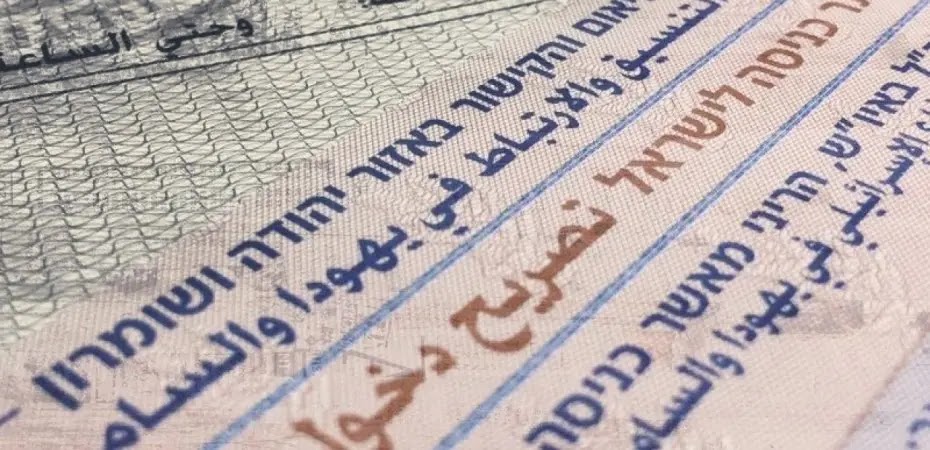 وحتي الساعة
והקישור באזור יהודה ושומרון –
التنسيق والارتباط في يهودا والسام
כניסה לישראל تصريح دخو
באיו"ש, הריני מאשר כניסה
الإسرائيلي في يهودا والسام